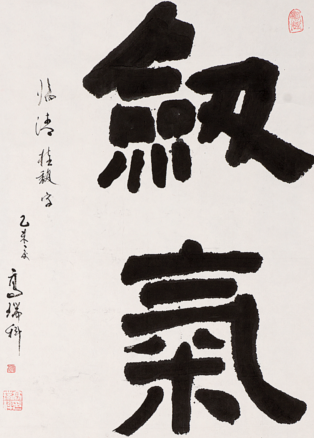 劔氣
臨清桂馥字
乙未冬
高瑞科